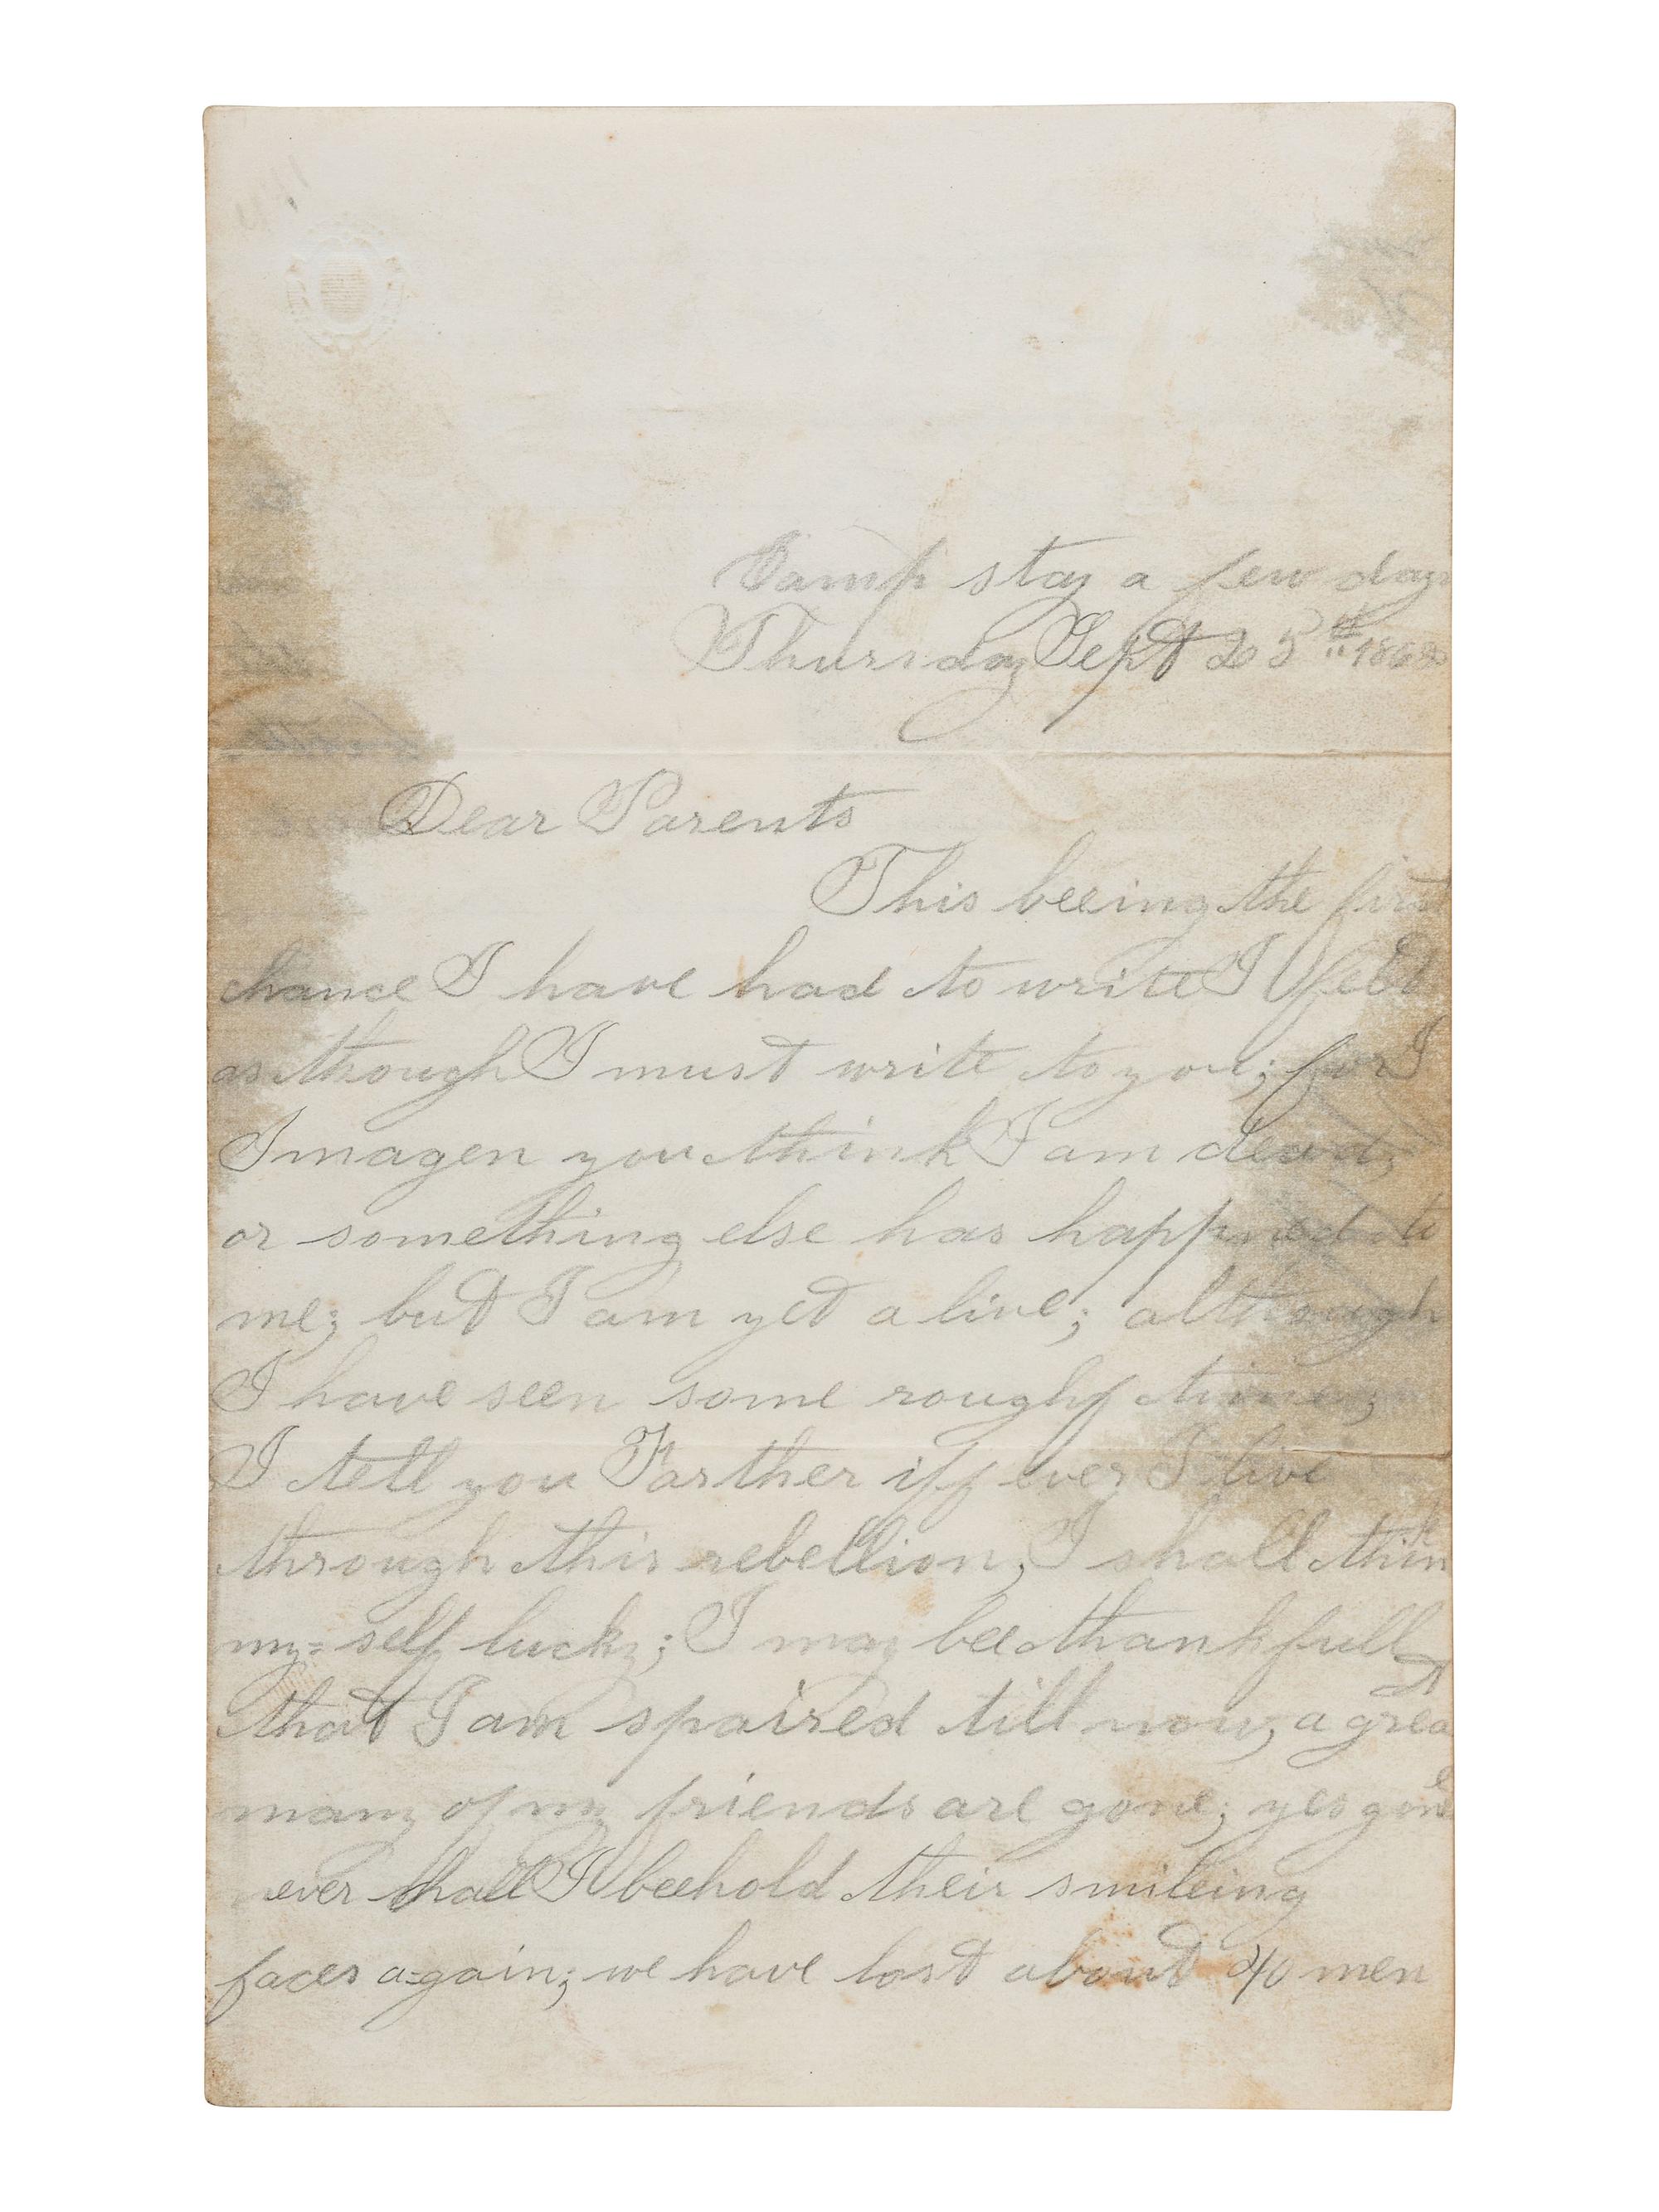 Camp stay a few days
Thursday Sept 25th 1862
Dear Parents
This beeing the first
chance I have had to write I felt
as though I must write to you; for I
Imagen you think I am dead,
or something else has happned to
me; but I am yet a live; although
I have seen some rough times;
I tell you Farther if ever I live
through this rebellion, I shall think
my=self lucky; I may bee thankfull
that I am spaired till now, a great
many of my friends are gone; yes gone
ever shall I beehold their smileing
faces a=gain; we have lost about 40 men